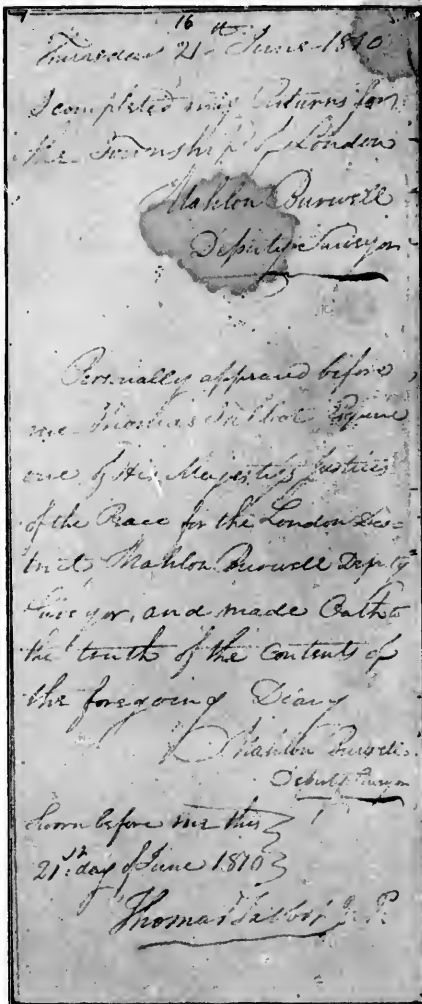 16
Thursday 21st June 1810
I completed my Returns for
the Township of London
Mahlon Burwell
Deputy Surveyor
Personally appeared before
me Thomas Talbot Esquire
one of His Majesty's Justices
of the Peace for the London Dis=
trict Mahlon Burwell Deputy
Surveyor, and made Oath to
the truth of the Contents of
the foregoing Diary
Mahlon Burwell
Deputy Surveyor
Sworn before me this
21st day of June 1810
Thomas Talbot J. P.